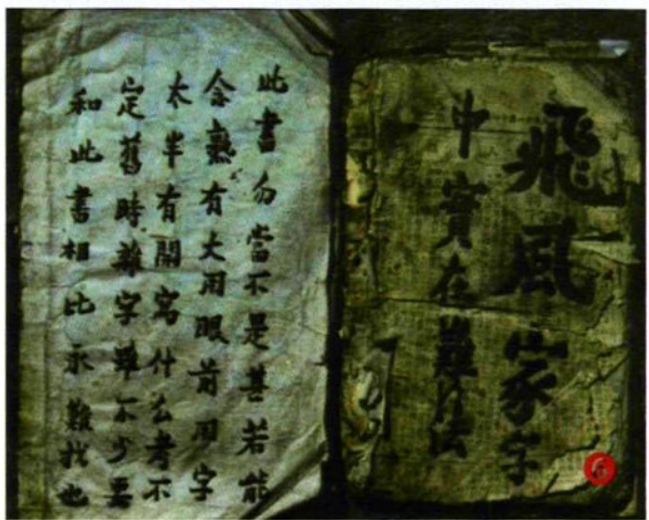 飛風家字
中實在難法
此書勿當不是善若能
念熟有大用眼前用字
太半有開寫什么考不
定舊時雜字雖不少要
和此書相比永難找也
6